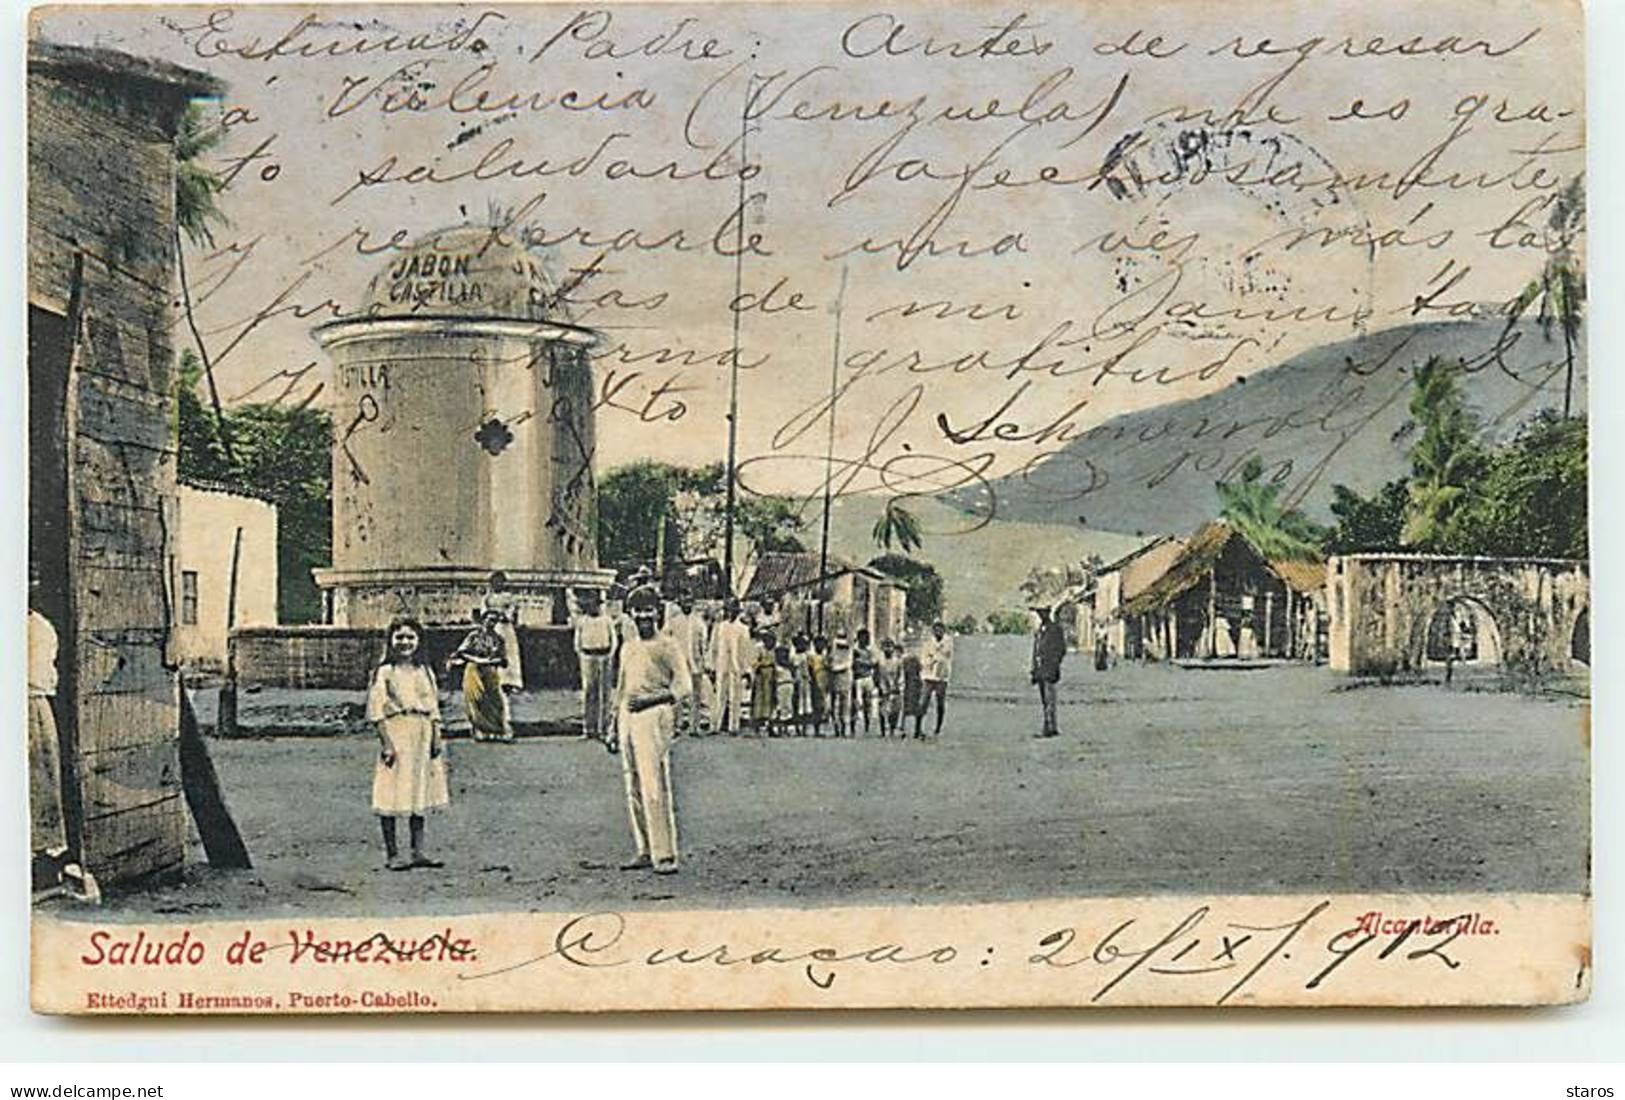 Estimado Padre: Antes de regresar
á Valencia (Venezuela) me es gra-
to saludarlo afectuosamente
y reiterarle una vez más las
protestas de mi amistad
y eterna gratitud. S. S. y
JABON
CASTILLA
JA
C
STILLA
JABON
J. Schnewolf.
Pbo
Saludo de Venezuela.
Curaçao: 26/IX/.912
Alcantarilla.
Ettedgui Hermanos, Puerto-Cabello.
delcampe.net
staros